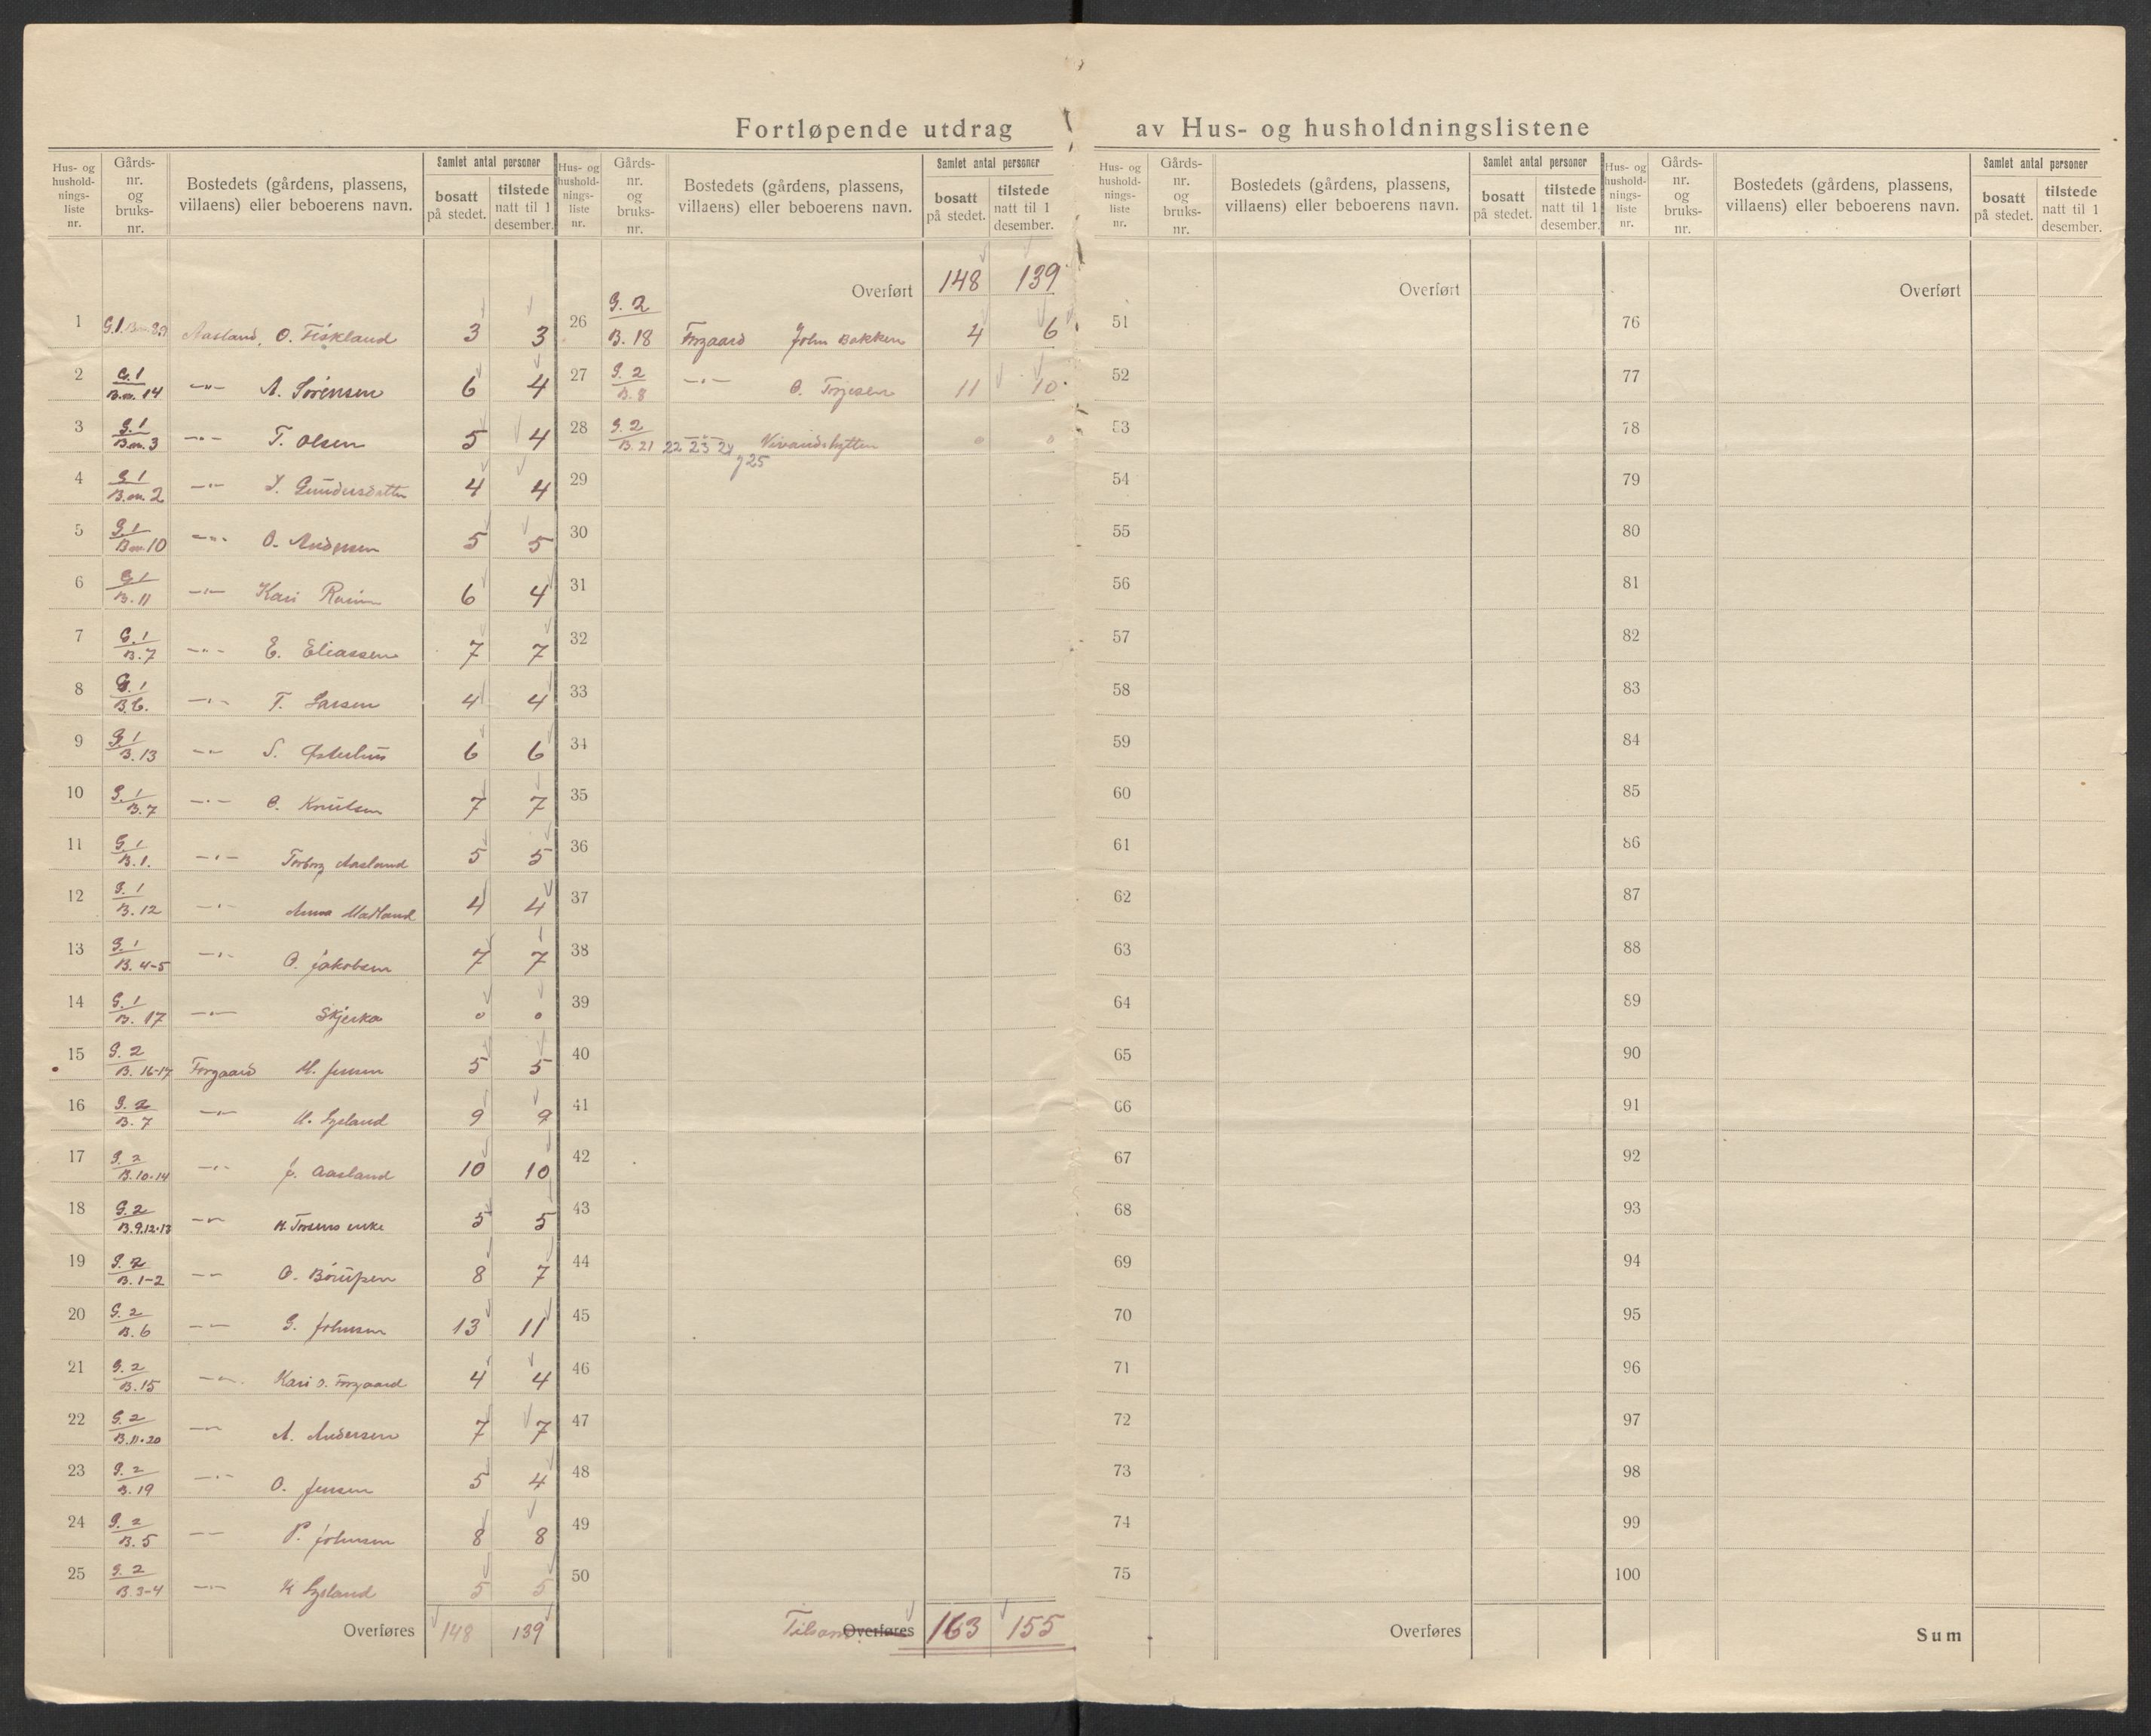 Fortløpende utdrag av Hus- og husholdningslistene
Hus- og hushold- nings- liste nr.
Gårds- nr. og bruks- nr.
Bostedets (gårdens, plassens, villaens) eller beboerens navn.
Samlet antal personer
bosatt på stedet.
tilstede natt til 1 desember.
1 G.1 Aasland, O. Fiskland 3 3
2 G.1 B.nr. 14 —"— A. Sørensen 6 4
3 G.1 B.nr. 3 —"— T. Olsen 5 4
4 G.1 B.nr. 2 —"— Gundersdatter 4 4
5 G.1 B.nr. 10 —"— O. Andersen 5 5
6 G.1 B. 11 —"— Kari 6 4
7 G.1 B. 7 —"— E. Eliassen 7 7
8 G.1 B. 6. —"— T. Larsen 4 4
9 G.1 B. 13 —"— S. Østerhus 6 6
10 G.1 B. 7 —"— O. Knutsen 7 7
11 G.1 B. 1. —"— Torborg Aasland 5 5
12 G.1 B. 12 —"— Anna 4 4
13 G.1 B. 4-5 —"— O. Jakobsen 7 7
14 G.1 B. 17 —"— Skjerka 0 0
15 G.2 B. 16-17 Forgaard M. Jensen 5 5
16 G.2 B. 7 —"— Lysland 9 9
17 G.2 B. 10-14 —"— J. Aasland 10 10
18 G.2 B. 9.12-13 —"— enke 5 5
19 G.2 B. 1-2 —"— O. 8 7
20 G.2 B. 6 —"— G. Johnsen 13 11
21 G.2 B. 15 —"— Kari O. Forgaard 4 4
22 G.2 B. 11-20 —"— A. Andersen 7 7
23 G.2 B. 19 —"— O. Jensen 5 4
24 G.2 B. 5 —"— P. Johnsen 8 8
25 G.2 B. 3-4 —"— Lysland 5 5
Overføres 148 139
Hus- og hushold- nings- liste nr.
Gårds- nr. og bruks- nr.
Bostedets (gårdens, plassens, villaens) eller beboerens navn.
Samlet antal personer
bosatt på stedet.
tilstede natt til 1 desember.
Overført 148 139
26 G. 2 B. 18 Forgaard John Bakken 4 6
27 G. 2 B. 8 —"— O. Torjesen 11 10
28 G. 2 B. 21 22 23 24 0 0
g 25
29
30
31
32
33
34
35
36
37
38
39
40
41
42
43
44
45
46
47
48
49
50
Tilsam. Overføres 163 155
Hus- og hushold- nings- liste nr.
Gårds- nr. og bruks- nr.
Bostedets (gårdens, plassens, villaens) eller beboerens navn.
Samlet antal personer
bosatt på stedet.
tilstede natt til 1 desember.
Overført
51
52
53
54
55
56
57
58
59
60
61
62
63
64
65
66
67
68
69
70
71
72
73
74
75
Overføres
Hus- og hushold- nings- liste nr.
Gårds- nr. og bruks- nr.
Bostedets (gårdens, plassens, villaens) eller beboerens navn.
Samlet antal personer
bosatt på stedet.
tilstede natt til 1 desember.
Overført
76
77
78
79
80
81
82
83
84
85
86
87
88
89
90
91
92
93
94
95
96
97
98
99
100
Sum